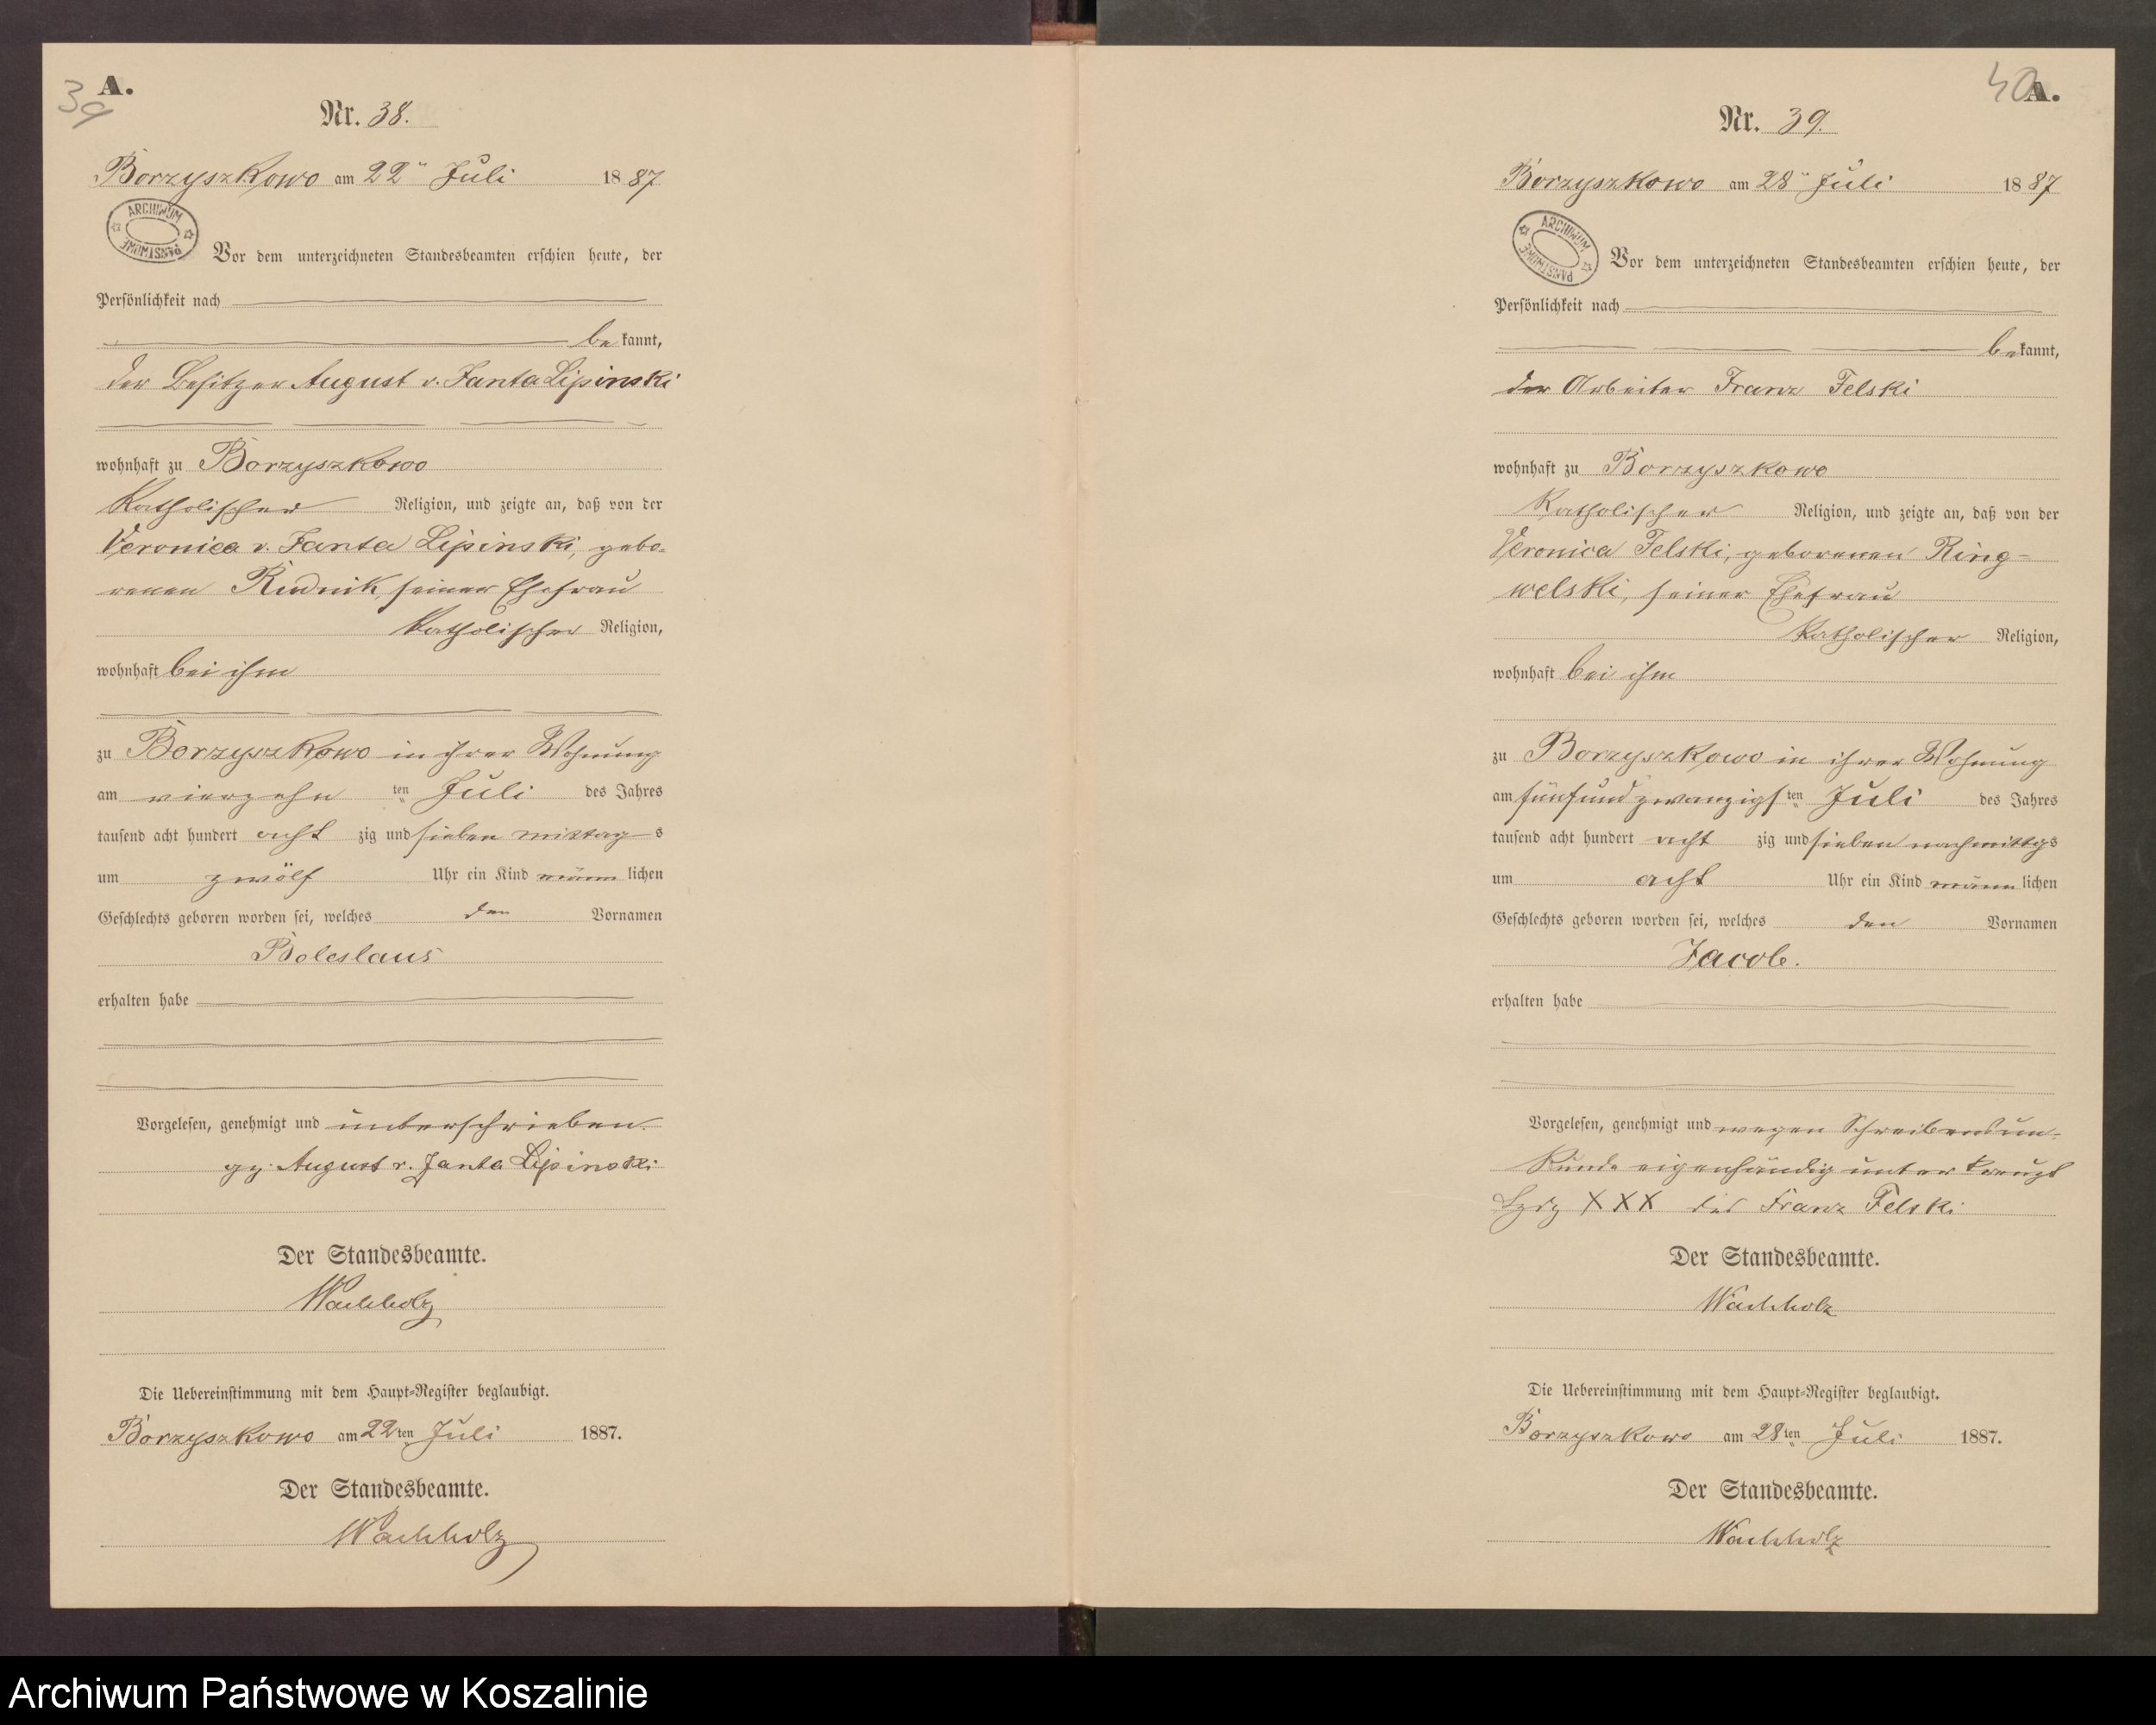 A.
39
Nr. 38.
Borzyszkowo am 22ten Juli 1887
ARCHIWUM PAŃSTWOWE
Vor dem unterzeichneten Standesbeamten erschien heute, der
Persönlichkeit nach
bekannt,
der Besitzer August v. Janta Lipinski
wohnhaft zu Borzyszkowo
Katholischer Religion, und zeigte an, daß von der
Veronica v. Janta Lipinski, gebo-
renen Rudnik, seiner Ehefrau
Katholischer Religion,
wohnhaft bei ihm
zu Borzyszkowo in ihrer Wohnung
am vierzehn ten Juli des Jahres
tausend acht hundert acht zig und sieben mittags
um zwölf Uhr ein Kind männlichen
Geschlechts geboren worden sei, welches den Vornamen
Boleslaus
erhalten habe
Vorgelesen, genehmigt und unterschrieben.
gz. August v. Janta Lipinski
Der Standesbeamte.
Wachholz
Die Uebereinstimmung mit dem Haupt-Register beglaubigt.
Borzyszkowo am 22ten Juli 1887.
Der Standesbeamte.
Wachholz
40
A.
Nr. 39.
Borzyszkowo am 28ten Juli 1887
ARCHIWUM PAŃSTWOWE
Vor dem unterzeichneten Standesbeamten erschien heute, der
Persönlichkeit nach
bekannt,
der Arbeiter Franz Felski
wohnhaft zu Borzyszkowo
Katholischer Religion, und zeigte an, daß von der
Veronica Felski, geborenen Ring-
welski, seiner Ehefrau
Katholischer Religion,
wohnhaft bei ihm
zu Borzyszkowo in ihrer Wohnung
am fünfundzwanzigsten Juli des Jahres
tausend acht hundert acht zig und sieben nachmittgs
um acht Uhr ein Kind männlichen
Geschlechts geboren worden sei, welches den Vornamen
Jacob.
erhalten habe
Vorgelesen, genehmigt und wegen Schreibensun-
kunde eigenhändig unterkreuzt
XXX des Franz Felski
Der Standesbeamte.
Wachholz
Die Uebereinstimmung mit dem Haupt-Register beglaubigt.
Borzyszkowo am 28ten Juli 1887.
Der Standesbeamte.
Wachholz
Archiwum Państwowe w Koszalinie